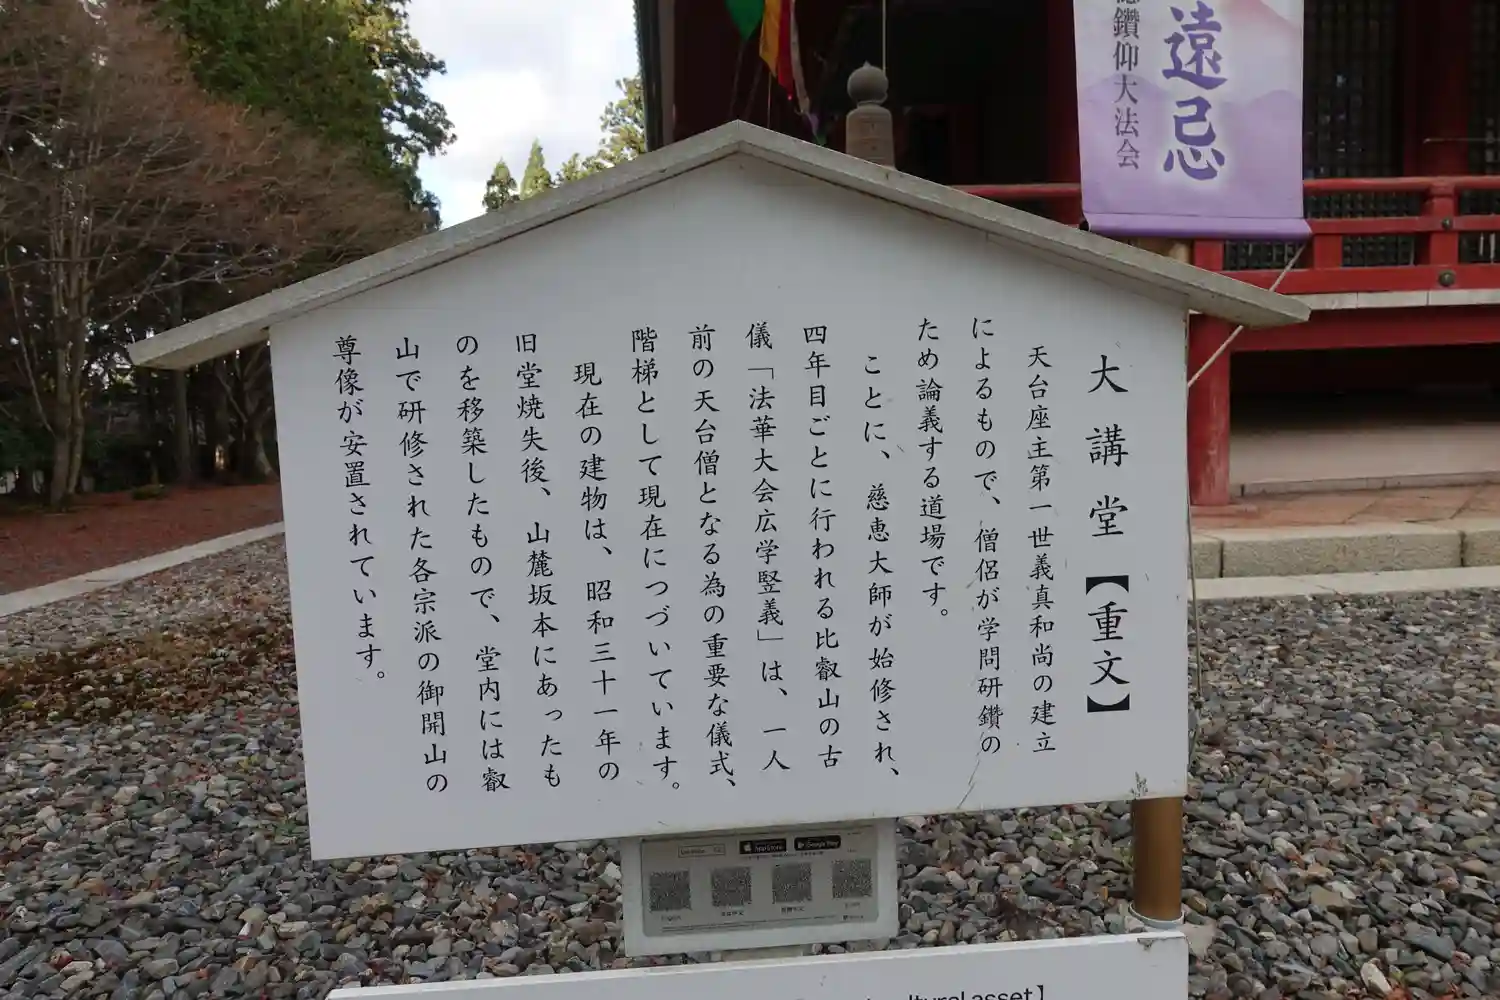 大講堂【重文】
天台座主第一世義真和尚の建立
によるもので、僧侶が学問研鑽の
ため論義する道場です。
ことに、慈恵大師が始修され、
四年目ごとに行われる比叡山の古
儀「法華大会広学竪義」は、一人
前の天台僧となる為の重要な儀式、
階梯として現在につづいています。
現在の建物は、昭和三十一年の
旧堂焼失後、山麓坂本にあったも
のを移築したもので、堂内には叡
山で研修された各宗派の御開山の
尊像が安置されています。
遠忌
鑽仰大法会
App Store
Google Play
asset】